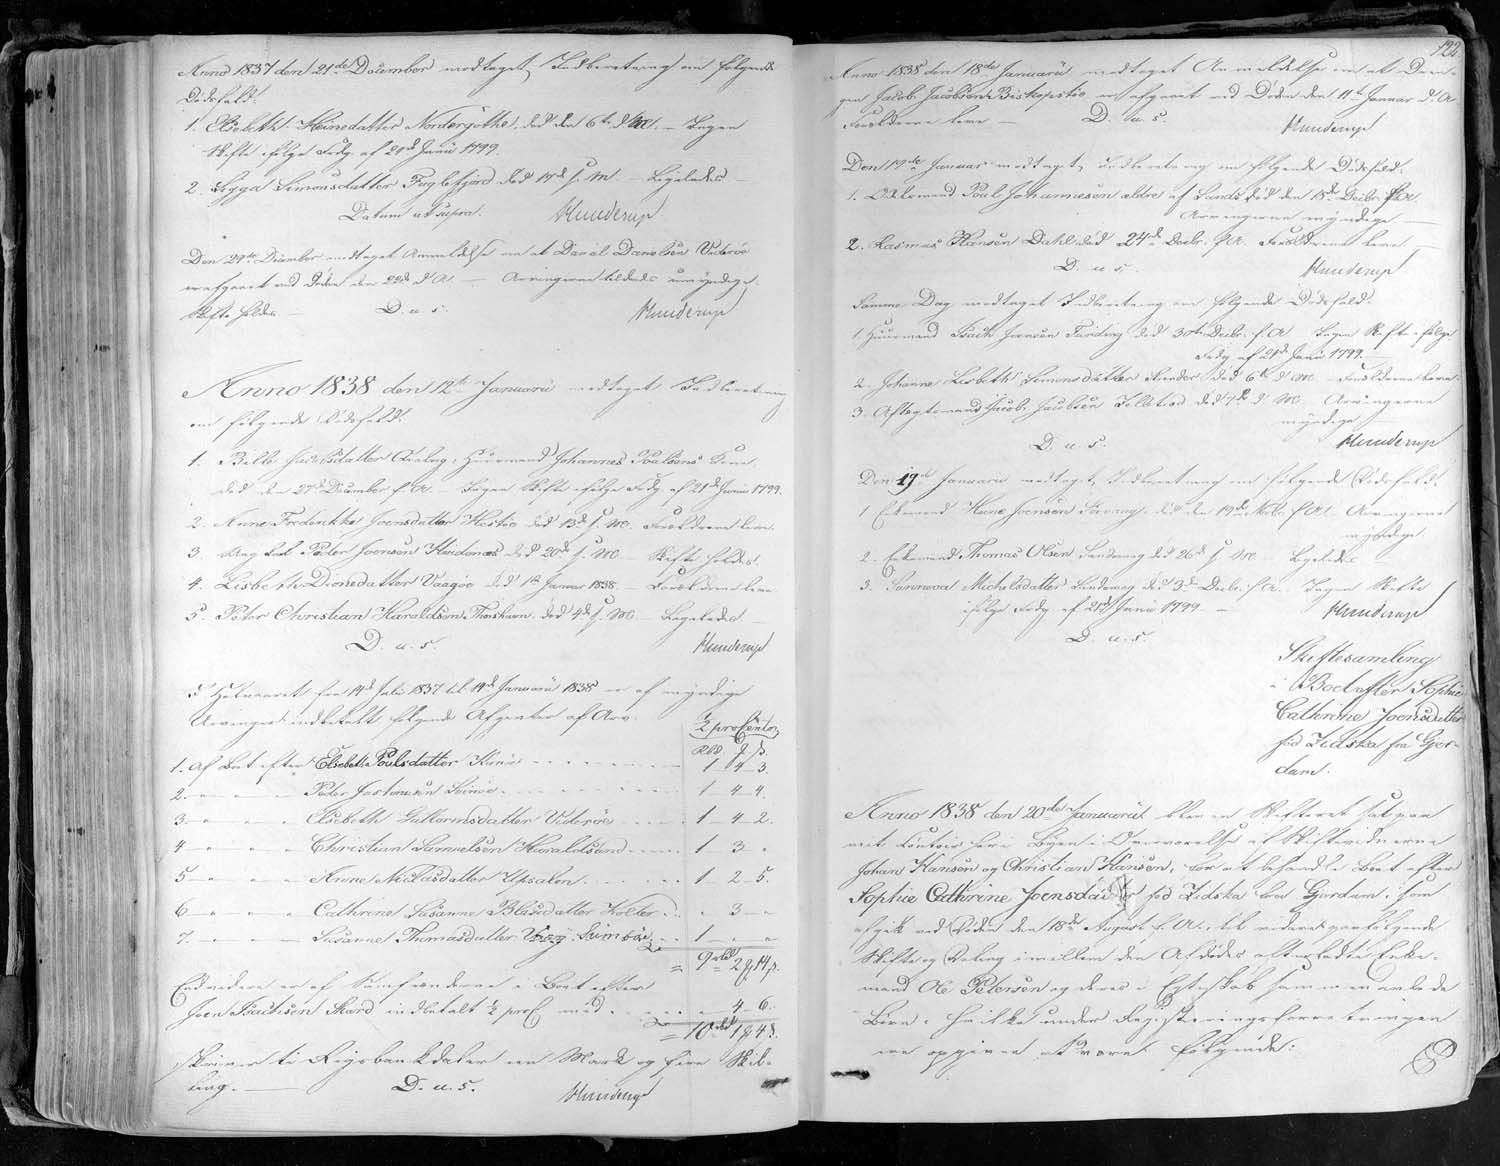 Anno 1837 den 21de December modtaget Indberetning om følgende
Dødsfald:
1. Elsebeth Heinesdatter Nordergøthe, død den 6te d. M. – Ingen
Skifte ifølge Fordg. af 21d Junii 1799.
2. Sigga Simonsdatter Fuglefjord død 17d s. M. – Ligeledes –
Datum ut supra. Hunderup
Den 29de December modtaget Anmeldelse om at Daniel Danielsen Viderøe
er afgaaet ved Døden den 22d d. A. – Arvingerne tildeels umyndige.
Skifte holdes. – D. u. s. Hunderup
Anno 1838 den 12te Januarii modtaget Indberetning
om følgende Dødsfald:
1. Bille Jacobsdatter Huusmand Johannes Poulsens Kone,
død den 27d December f. A. – Ingen Skifte ifølge Fordg. af 21d Junii 1799.
2. Anne Fredrikke Joensdatter Hestøe død 13d s. M. Forældrene leve.
3. Peder Joensen Hvidenæs død 20d s. M. – Skifte holdes.
4. Lisbeth Dionedatter Vaagøe død 1te Januar 1838. – Forældrene leve.
5. Peter Christian Haraldsen Thorshavn død 4d s. M. – Ligeledes –
D. u. s. Hunderup
I Halvaaret fra 14d Julii 1837 til 14d Januarii 1838 er af myndige
Arvinger indbetalt følgende Afgivter af Arv:
½ procento
Rbd. ꝭ. ß.
1. Af Boet efter Elsebeth Poulsdatter Kunøe – 1 – 4 – 3.
2. – " – " – " Peder Joshuasen – 1 – 4 – 4.
3. – " – " – " Elsebeth Guttormsdatter Viderøe – 1 – 4 – 2.
4 – " – " – " Christian Samuelsen Haraldsund – 1 – 3 "
5 – " – " – " Anne Niclasdatter Upsalen – 1 – 2 – 5.
6 – " – " – " Cathrine Susanne Blasiidatter Kolter – " – 3 – "
7. – " – " – " Susanne Thomasdatter Sumbøe – 1 – " – "
= 9 rbd 2 ꝭ 14 ß.
Endvidere er af Samfrænderne i Boet efter
Joen Isaksen Skard indbetalt ½ proC med – " – 4 – 6.
= 10 rbd 1 ꝭ 4 ß.
skriver ti Rigsbankdaler een Mark og fire Skil-
ling. – D. u. s. Hunderup
122
Anno 1838 den 18de Januarii modtaget Anmeldelse om at Dren-
gen Jacob Jacobsen Biskopstøe er afgaaet ved Døden den 11te Januar d. A.
Forældrene leve – D. u. s. Hunderup
Den 19de Januar modtaget Indberetning om følgende Dødsfald:
1. Odelsmand Poul Johannesen ældre af Sands død den 18d Decbr. f. A.
Arvingerne myndige –
2. Rasmus Hansen Dahl død 24d Decbr. f. A. Forældrene leve –
D. u. s. Hunderup
Samme Dag modtaget Indberetning om følgende Dødsfald:
1. Huusmand Isach Joensen død 30te Decbr. f. A. Ingen Skifte ifølge
Fordg. af 21d Junii 1799. –
2. Johanne Lisbeth Simonsdatter død 6te d. M. – Forældrene leve.
3. Aftægtsmand Jacob Jacobsen død 7de d. M. Arvingerne
myndige –
D. u. s. Hunderup
Den 19de Januarii modtaget Indberetning om følgende Dødsfald:
1 Enkemand Heine Joensen død den 19d Novbr. f. A. Arvingerne
myndige
2. Enkemand Thomas Olsen død 26d s. M. Ligeledes
3. Michelsdatter død 3d Decbr. f. A. Ingen Skifte
ifølge Fordg. af 21d Junii 1799. – Hunderup
D. u. s.
Skiftesamling
i Boet efter Sophie
Cathrine Joensdatter
fød Zidska fra Gjer-
dum.
Anno 1838 den 20de Januarii blev en Skifteret sat paa
mit Contoir her i Byen i Overværelse af Skiftevidnerne
Johan Hansen og Christian Hansen, for at behandle Boet efter
Sophie Cathrine Joensdatter fød Zidska fra Gjerdum, som
afgik ved Døden den 18de August f. A., til videre paafølgende
Skifte og Deling imellem den Afdødes efterladte Enke-
mand Ole Petersen og deres i Egteskab sammenavlede
Børn, hvilke under Registreringsforretningen
ere opgivne at være følgende: